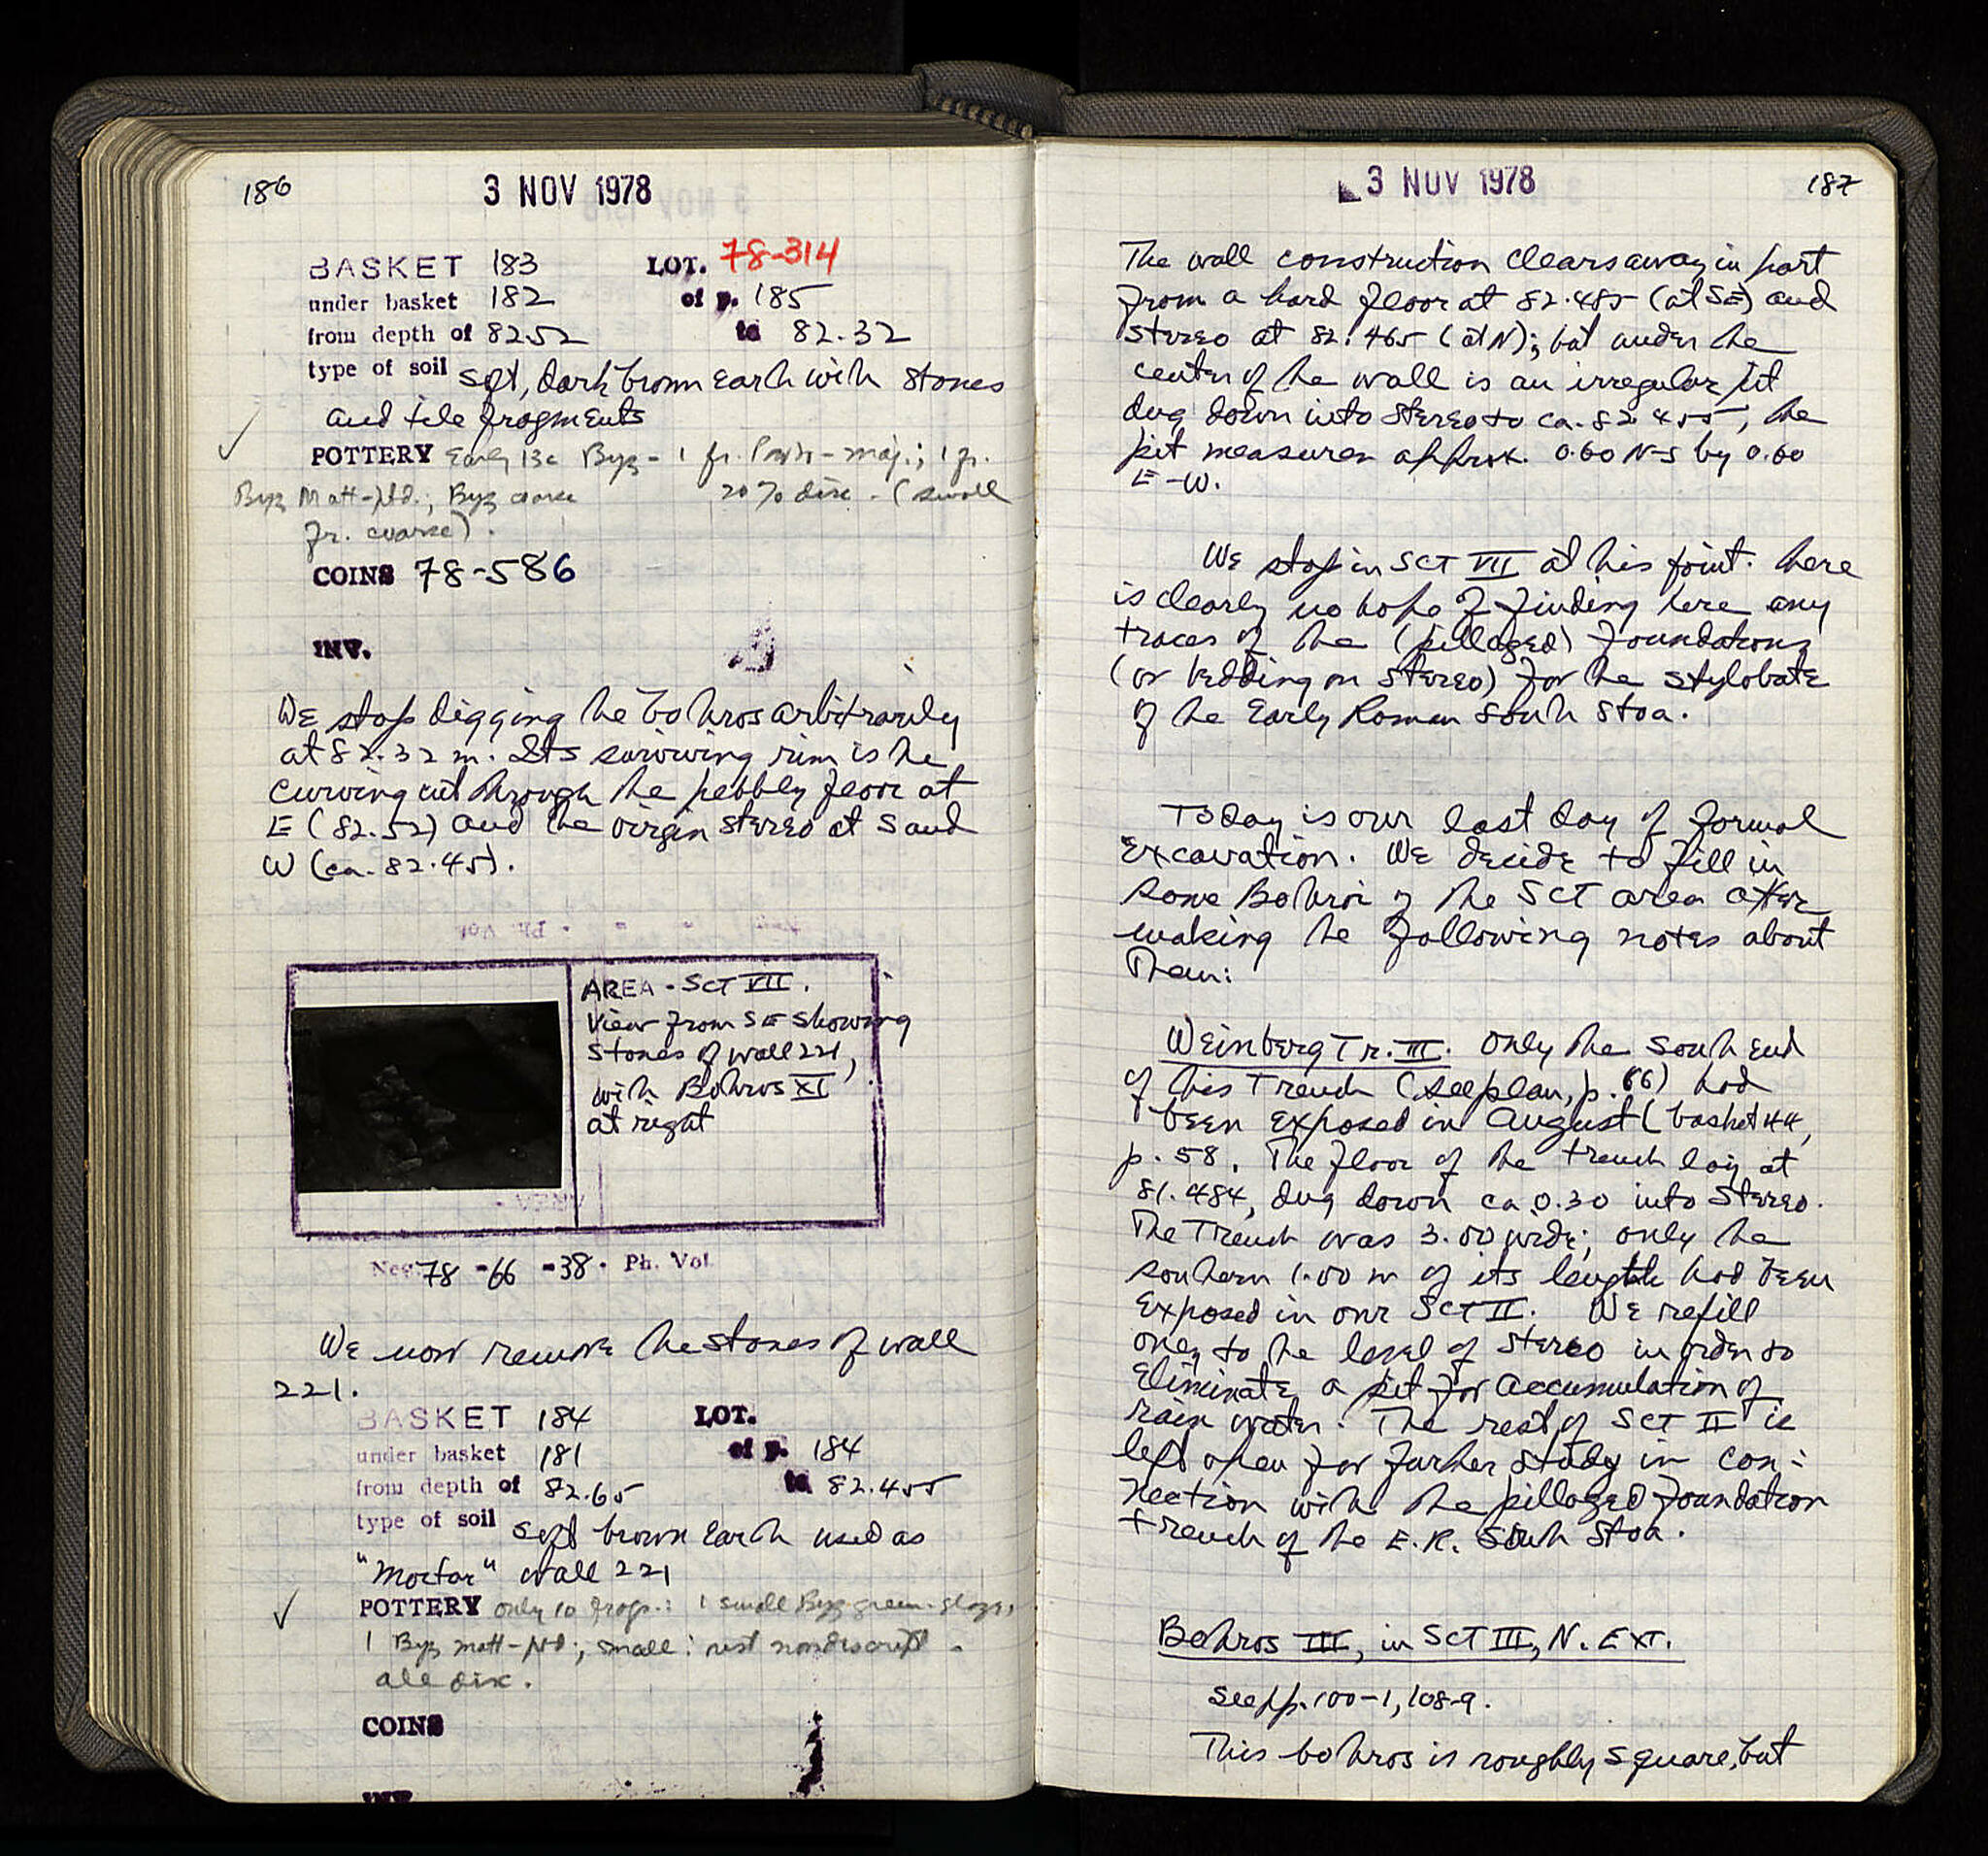 186
3 NOV 1978
BASKET 183 LOT. 78-314
under basket 182 of p. 185
from depth of 82.52 to 82.32
type of soil soft, dark brown earth with stones
and tile fragments
POTTERY Early 13c Byz - 1 fr. - maj.; 1 fr.
Byz Matt-ptd.; Byz coarse 20% disc. - (small
fr. coarse).
COINS 78-586
INV.
We stop digging the bothros arbitrarily
at 82.32 m. Its surviving rim is the
curving cut through the pebbly floor at
E (82.52) and the virgin stereo at S and
W (ca. 82.45).
AREA - SCT VII.
View from SE showing
stones of wall 221,
with Bothros XI
at right
Neg. 78-66-38. Ph. Vol.
We now remove the stones of wall
221.
BASKET 184 LOT.
under basket 181 of p. 184
from depth of 82.65 to 82.455
type of soil soft brown earth used as
"mortar" wall 221
POTTERY only 10 frags.: 1 small Byz green-glaze,
1 Byz matt-ptd; small: rest nondescript -
all disc.
COINS
INV
3 NOV 1978
187
The wall construction clears away in part
from a hard floor at 82.485 (at SE) and
stereo at 82.465 (at N); but under the
center of the wall is an irregular pit
dug down into stereo to ca. 82.455; the
pit measures approx. 0.60 N-S by 0.60
E-W.
We stop in SCT VII at this point. There
is clearly no hope of finding here any
traces of the (pillaged) foundations
(or bedding on stereo) for the stylobate
of the Early Roman South Stoa.
Today is our last day of formal
excavation. We decide to fill in
some Bothroi of the SCT area after
making the following notes about
them:
Weinberg Tr. III. Only the South end
of this Trench (see plan, p. 66) had
been exposed in August (basket 44,
p. 58. The floor of the trench lay at
81.484, dug down ca 0.30 into stereo.
The Trench was 3.00 wide; only the
southern 1.00 m of its length had been
exposed in our SCT II. We refill
only to the level of stereo in order to
eliminate a pit for accumulation of
rain water. The rest of SCT II is
left open for further study in con-
nection with the pillaged foundation
trench of the E.R. South Stoa.
Bothros III, in SCT III, N. EXT.
see pp. 100-1, 108-9.
This bothros is roughly square, but